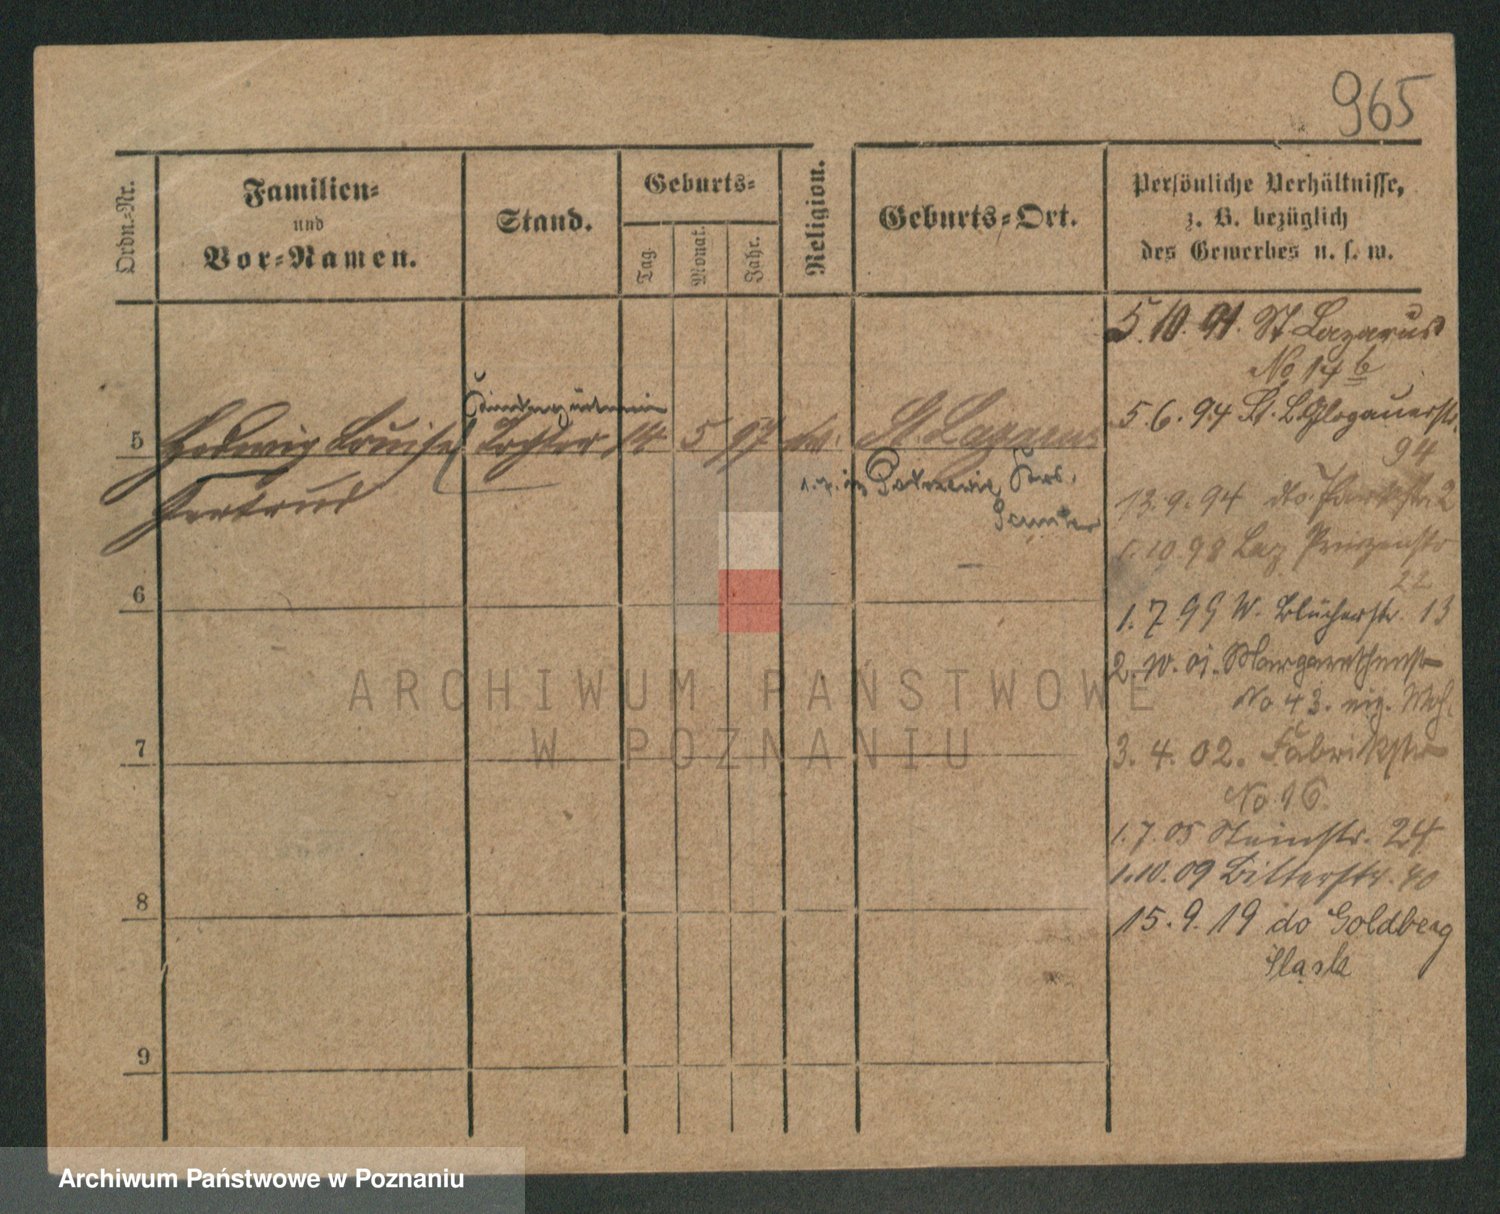 965
Ordn.-Nr.
Familien-
und
Vor-Namen.
Stand.
Geburts-
Tag.
Monat.
Jahr.
Religion.
Geburts-Ort.
Persönliche Verhältnisse,
z. B. bezüglich
des Gewerbes u. s. w.
5 Hedwig Louise Tochter 14 5 97 St. Lazarus
Gertrud
Samter
6
7
8
9
5.10.91. St Lazarus
No 14 b
5.6.94 St. L. Glogauerstr.
94
13.9.94 do. Parkstr. 2
1.10.98 Laz Prinzenstr
22
1.7.99 W. Blücherstr. 13
2.10.01. Margarethenstr
No 43.
3.4.02. Fabrikstr
No 16.
1.7.05 Steinstr. 24
1.10.09 Bitterstr. 40
15.9.19 do Goldberg
Śląsk
ARCHIWUM PAŃSTWOWE
W POZNANIU
Archiwum Państwowe w Poznaniu